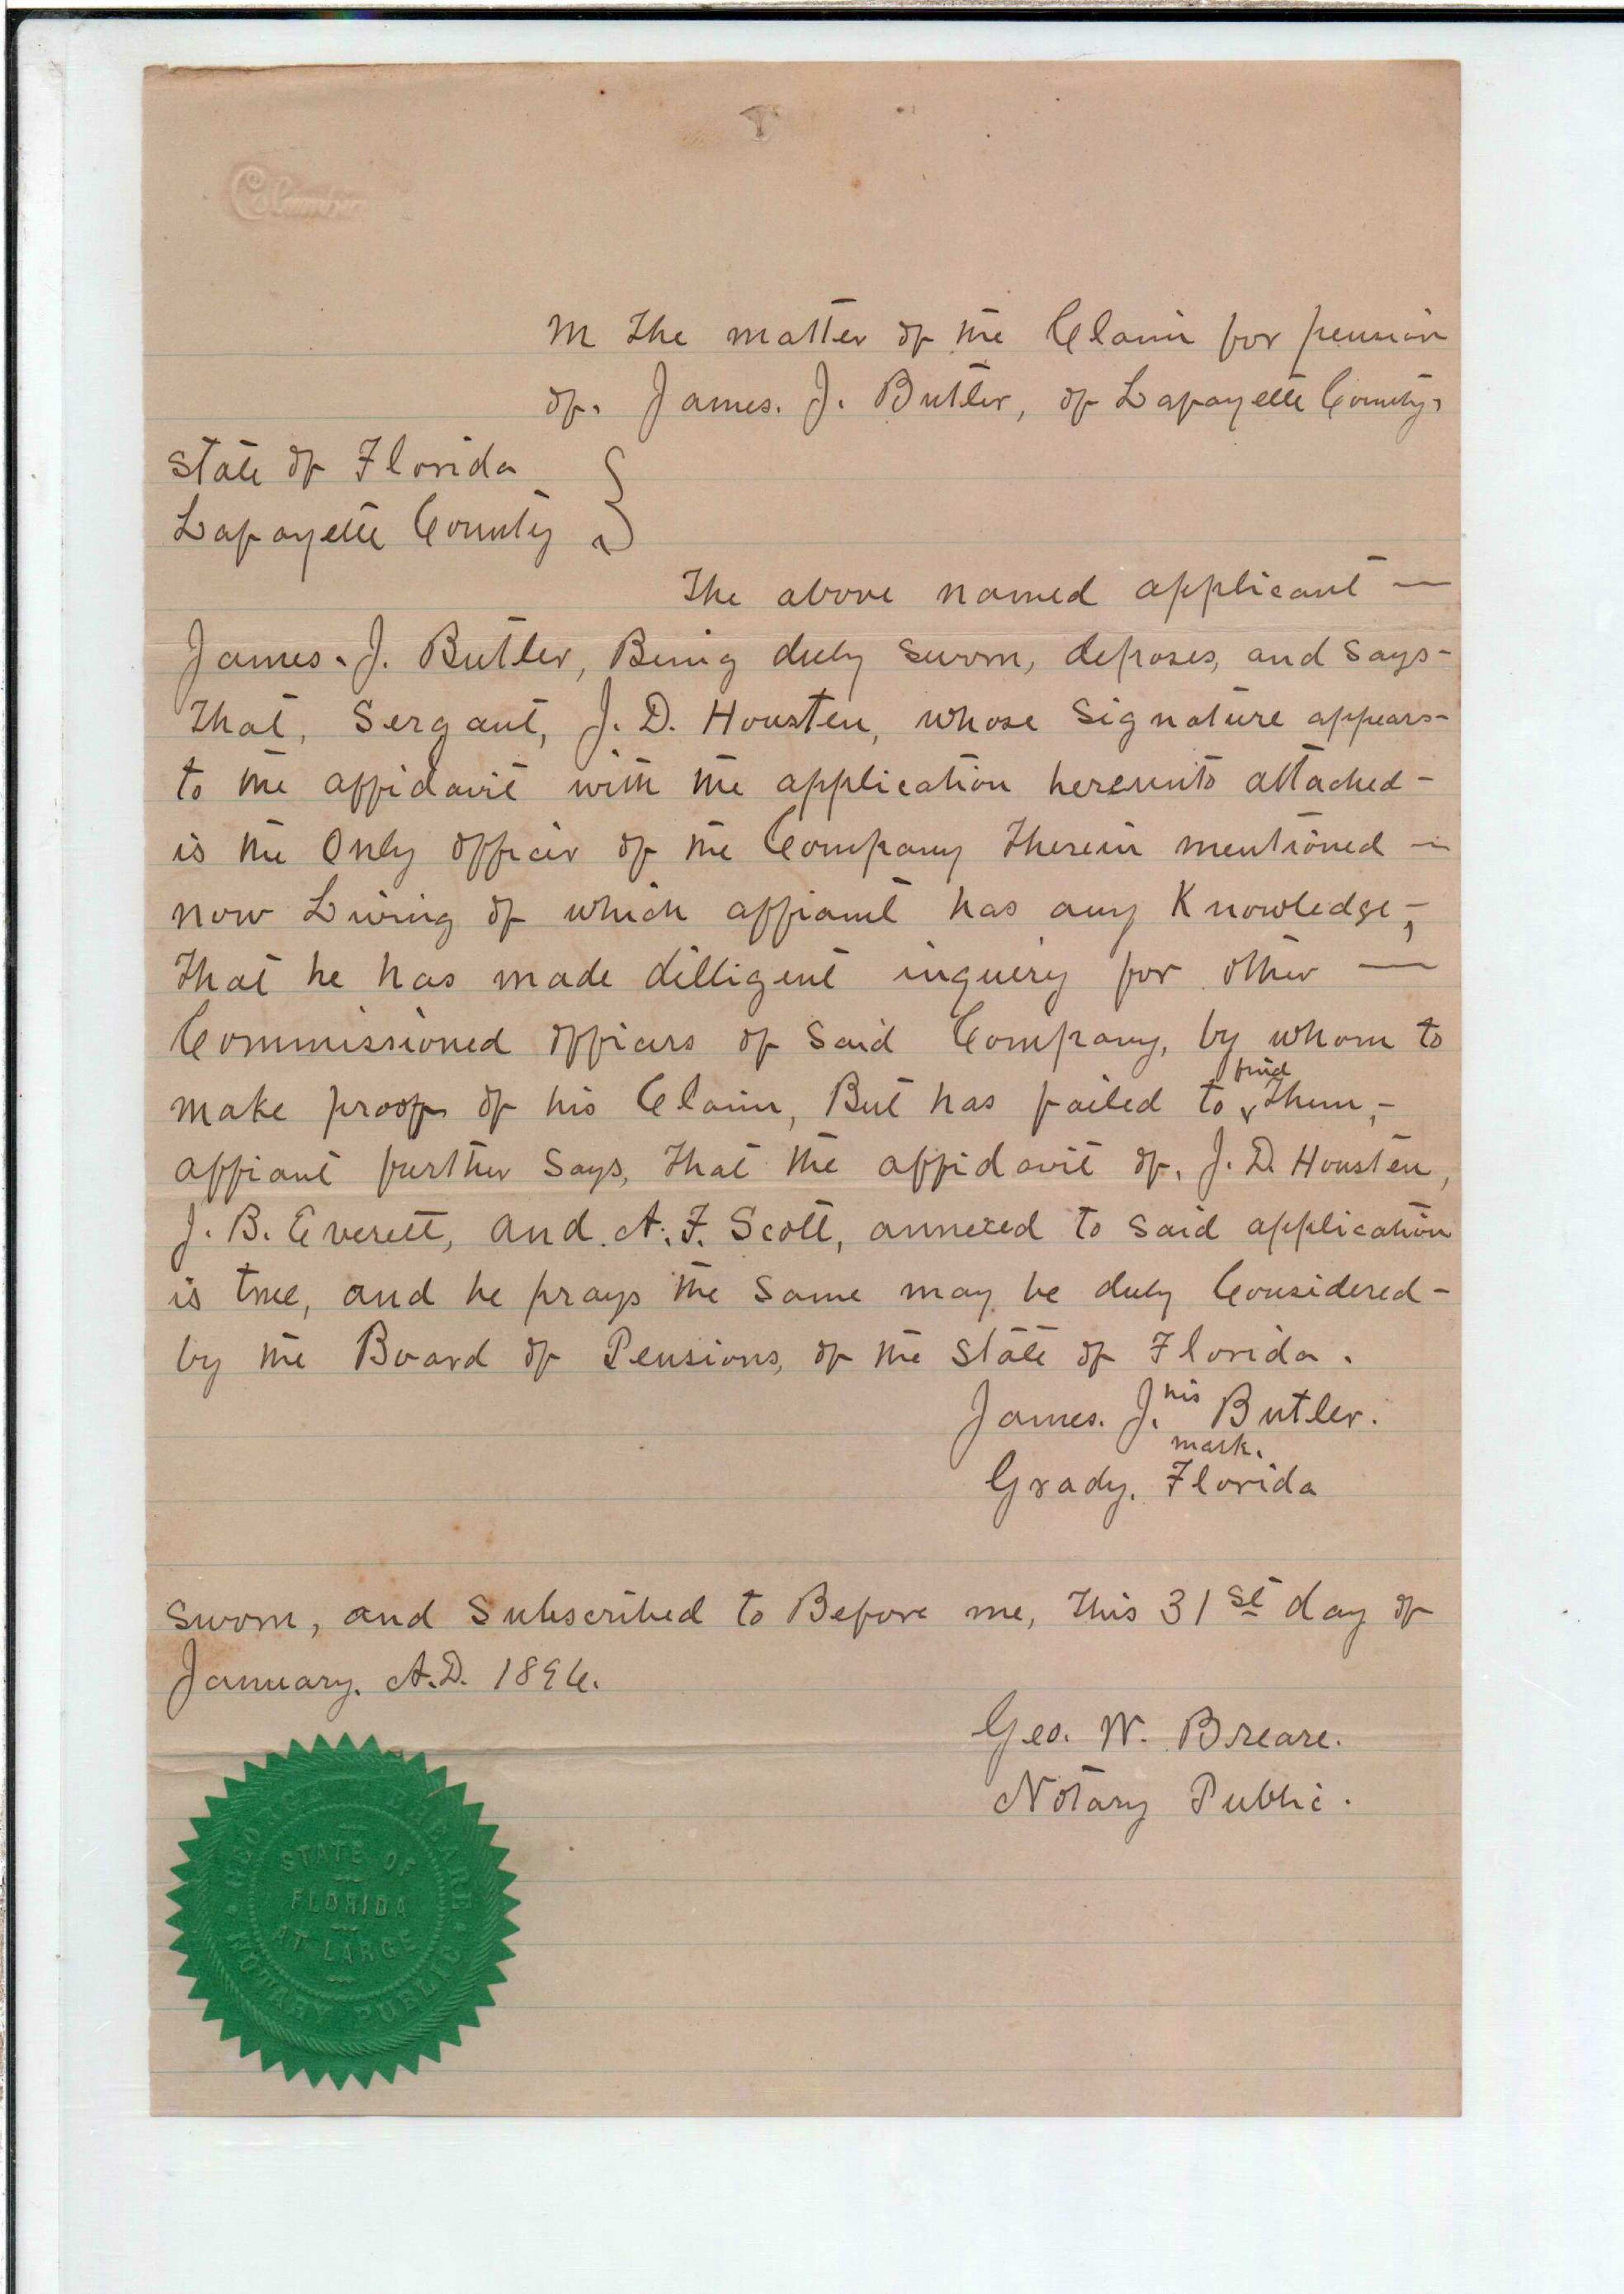 Columbia
In the matter of the Claim for pension
of. James. J. Butler, of Lafayette County,
State of Florida
Lafayette County }
The above named applicant —
James. J. Butler, Being duly sworn, deposes, and says-
That, Sergant, J. D. Housten, whose Signature appears-
to the affidavit with the application hereunto attached-
is the Only officer of the Company Therein mentioned —
now Living of which affiant has any Knowledge,-
That he has made dilligent inquery for other —
Commissioned officers of said Company, by whom to
make proof of his Claim, But has failed to find Them,-
affiant further Says, That the affidavit of, J. D. Housten,
J. B. Everett, and A. F. Scott, annexed to said application
is true, and he prays the same may be duly Considered-
by the Board of Pensions, of the State of Florida.
James. J. his Butler.
mark.
Grady, Florida
Sworn, and Subscribed to Before me, This 31st day of
January. A.D. 1896.
Geo. W. Breare.
Notary Public.
GEO. W. BREARE
STATE OF
FLORIDA
AT LARGE
NOTARY PUBLIC